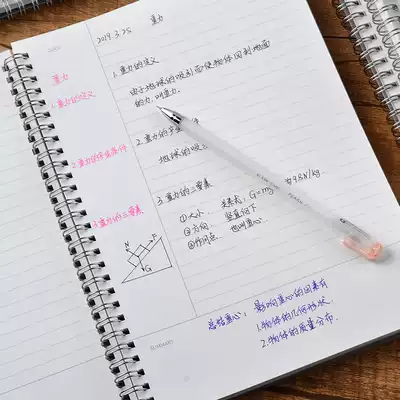 2019.3.25
重力
重力
1.重力的定义
由于地球的吸引而使物体回到地面
的力，叫重力.
1.重力的定义
2.重力的产生条件
地球的吸
2.重力的产生条件
3.重力的三要素
①大小. 关系式：G=mg 9.8N/kg
②方向. 竖直向下
③作用点. 也叫重心
3.重力的三要素
N
F
G
总结重心：影响重心的因素有
1.物体的几何形状.
2.物体的质量分布.
SUMMARY